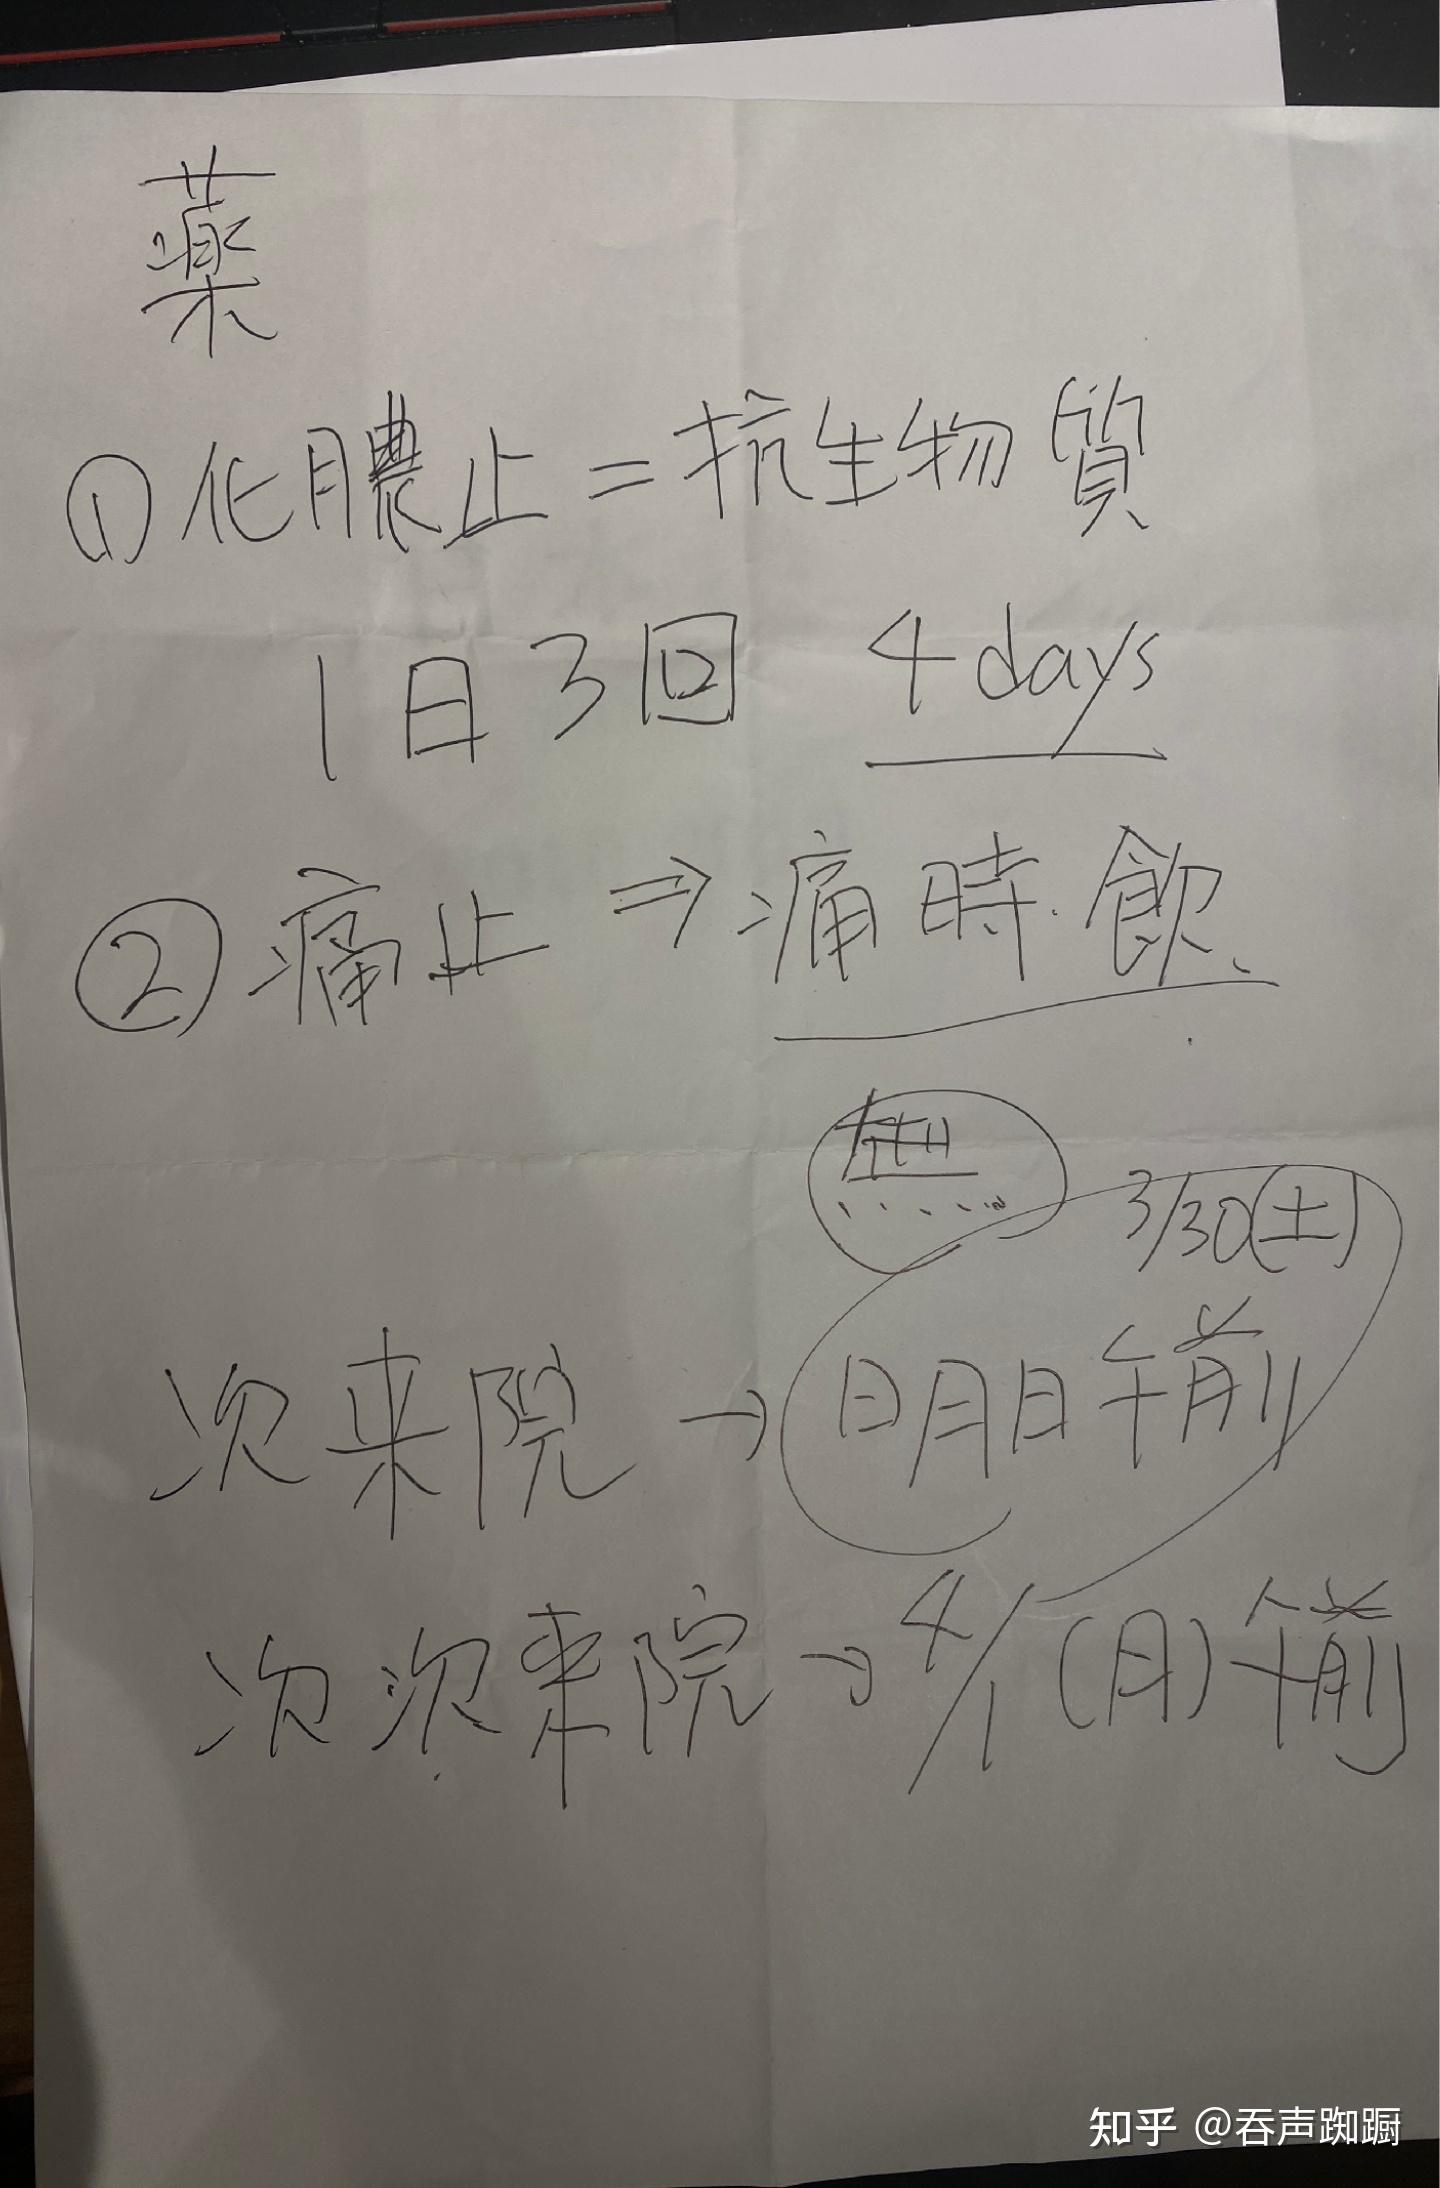 薬
①化膿止=抗生物質
1日3回 4days
②痛止⇒痛時飲、
無
3/30(土)
次来院→明日午前
次次来院→4/1(月)午前
知乎 @吞声踟蹰